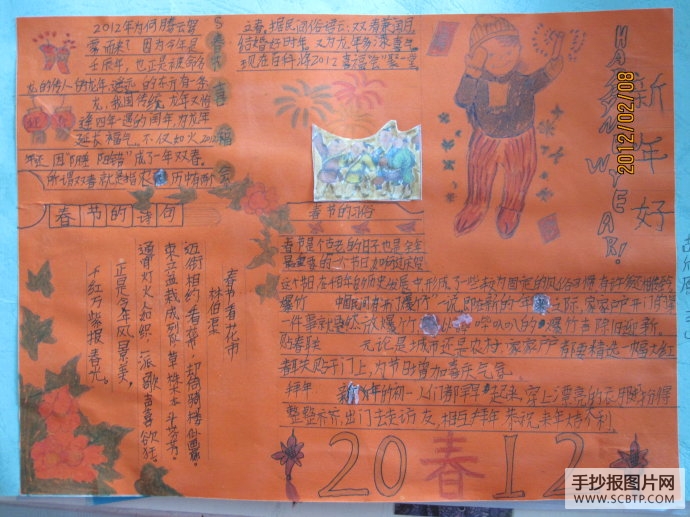 2012年为何腾云驾
雾而来？因为今年是
壬辰年，也正是被命名
龙的传人的龙年，遥远的东方有一条
龙，我国传统，龙年又恰
逢四年一遇的闰年，为龙年
延长福气，不仅如此2012
年还因“阳 阴错”成了一年双春。
所谓双春就是指农 历中有两个
立春，据民间俗语云：双春兼闰月
结婚好时年，又为龙年多添喜气
现在百拜 2012 喜福会聚一堂
春节喜福会
春节的诗句
春节看花市
林伯渠
迈街相约看花市，却倚骑楼似画廊。
束立盆栽成列队，草株木本斗芬芳。
通宵灯火人如织，一派歌声喜欲狂。
正是今年风景美，
千红万紫报春光。
春节的习俗
春节是个古老的日子也是全年
最重要的一个节日如何过庆贺
这个节日在千百年的历史发展中形成了一些较为固定的风俗习惯有许多还相传至今
爆竹 中国民间有“开门爆竹”一说，即在新的一年 之际，家家户户开门的第
一件事就是燃放爆竹 哔叭叭的爆竹声除旧迎新。
贴春联 无论是城市还是农村，家家户户都要精选一幅大红
春联贴于门上，为节日增加喜庆气氛
拜年 新年的初一人们都早早起来，穿上漂亮的衣服打扮得
整整齐齐，出门去走访友，相互拜年恭祝来年大吉大利
HAPPY NEW YEAR!
新年好
2012/02/08
20春12
手抄报图片网
WWW.SCBTP.COM